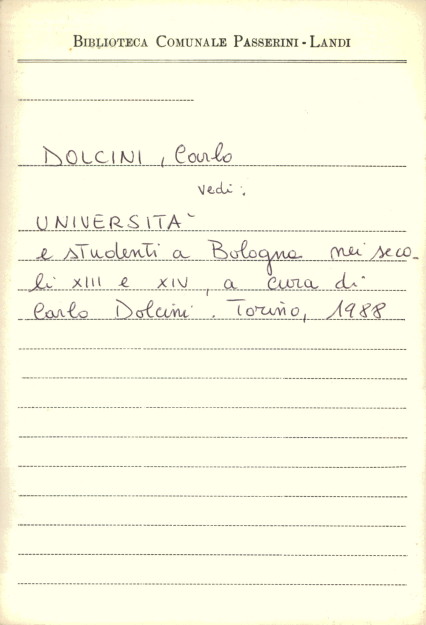 BIBLIOTECA COMUNALE PASSERINI - LANDI
DOLCINI, Carlo
vedi:
UNIVERSITA`
e studenti a Bologna nei seco-
li XIII e XIV, a cura di
Carlo Dolcini. Torino, 1988